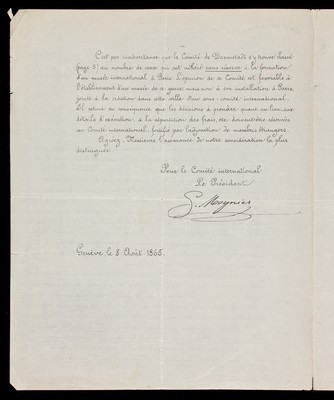 C'est par inadvertance que le Comité de Darmstadt s'y trouve classé
(page 5) au nombre de ceux qui ont adhéré sans réserve à la formation
d'un musée international à Paris. L'opinion de ce Comité est favorable à
l'établissement d'un musée de ce genre, mais non à son installation à Paris,
jointe à la création dans cette ville d'un sous-comité international.
Il estime en conséquence que les décisions à prendre quant au lieu, aux
détails d'exécution, à la répartition des frais, etc. devraient être réservées
au Comité international, fortifié par l'adjonction de membres étrangers.
Agréez, Messieurs, l'assurance de notre considération la plus
distinguée.
Pour le Comité international
Le Président
G. Moynier
Genève le 8 Août 1865.